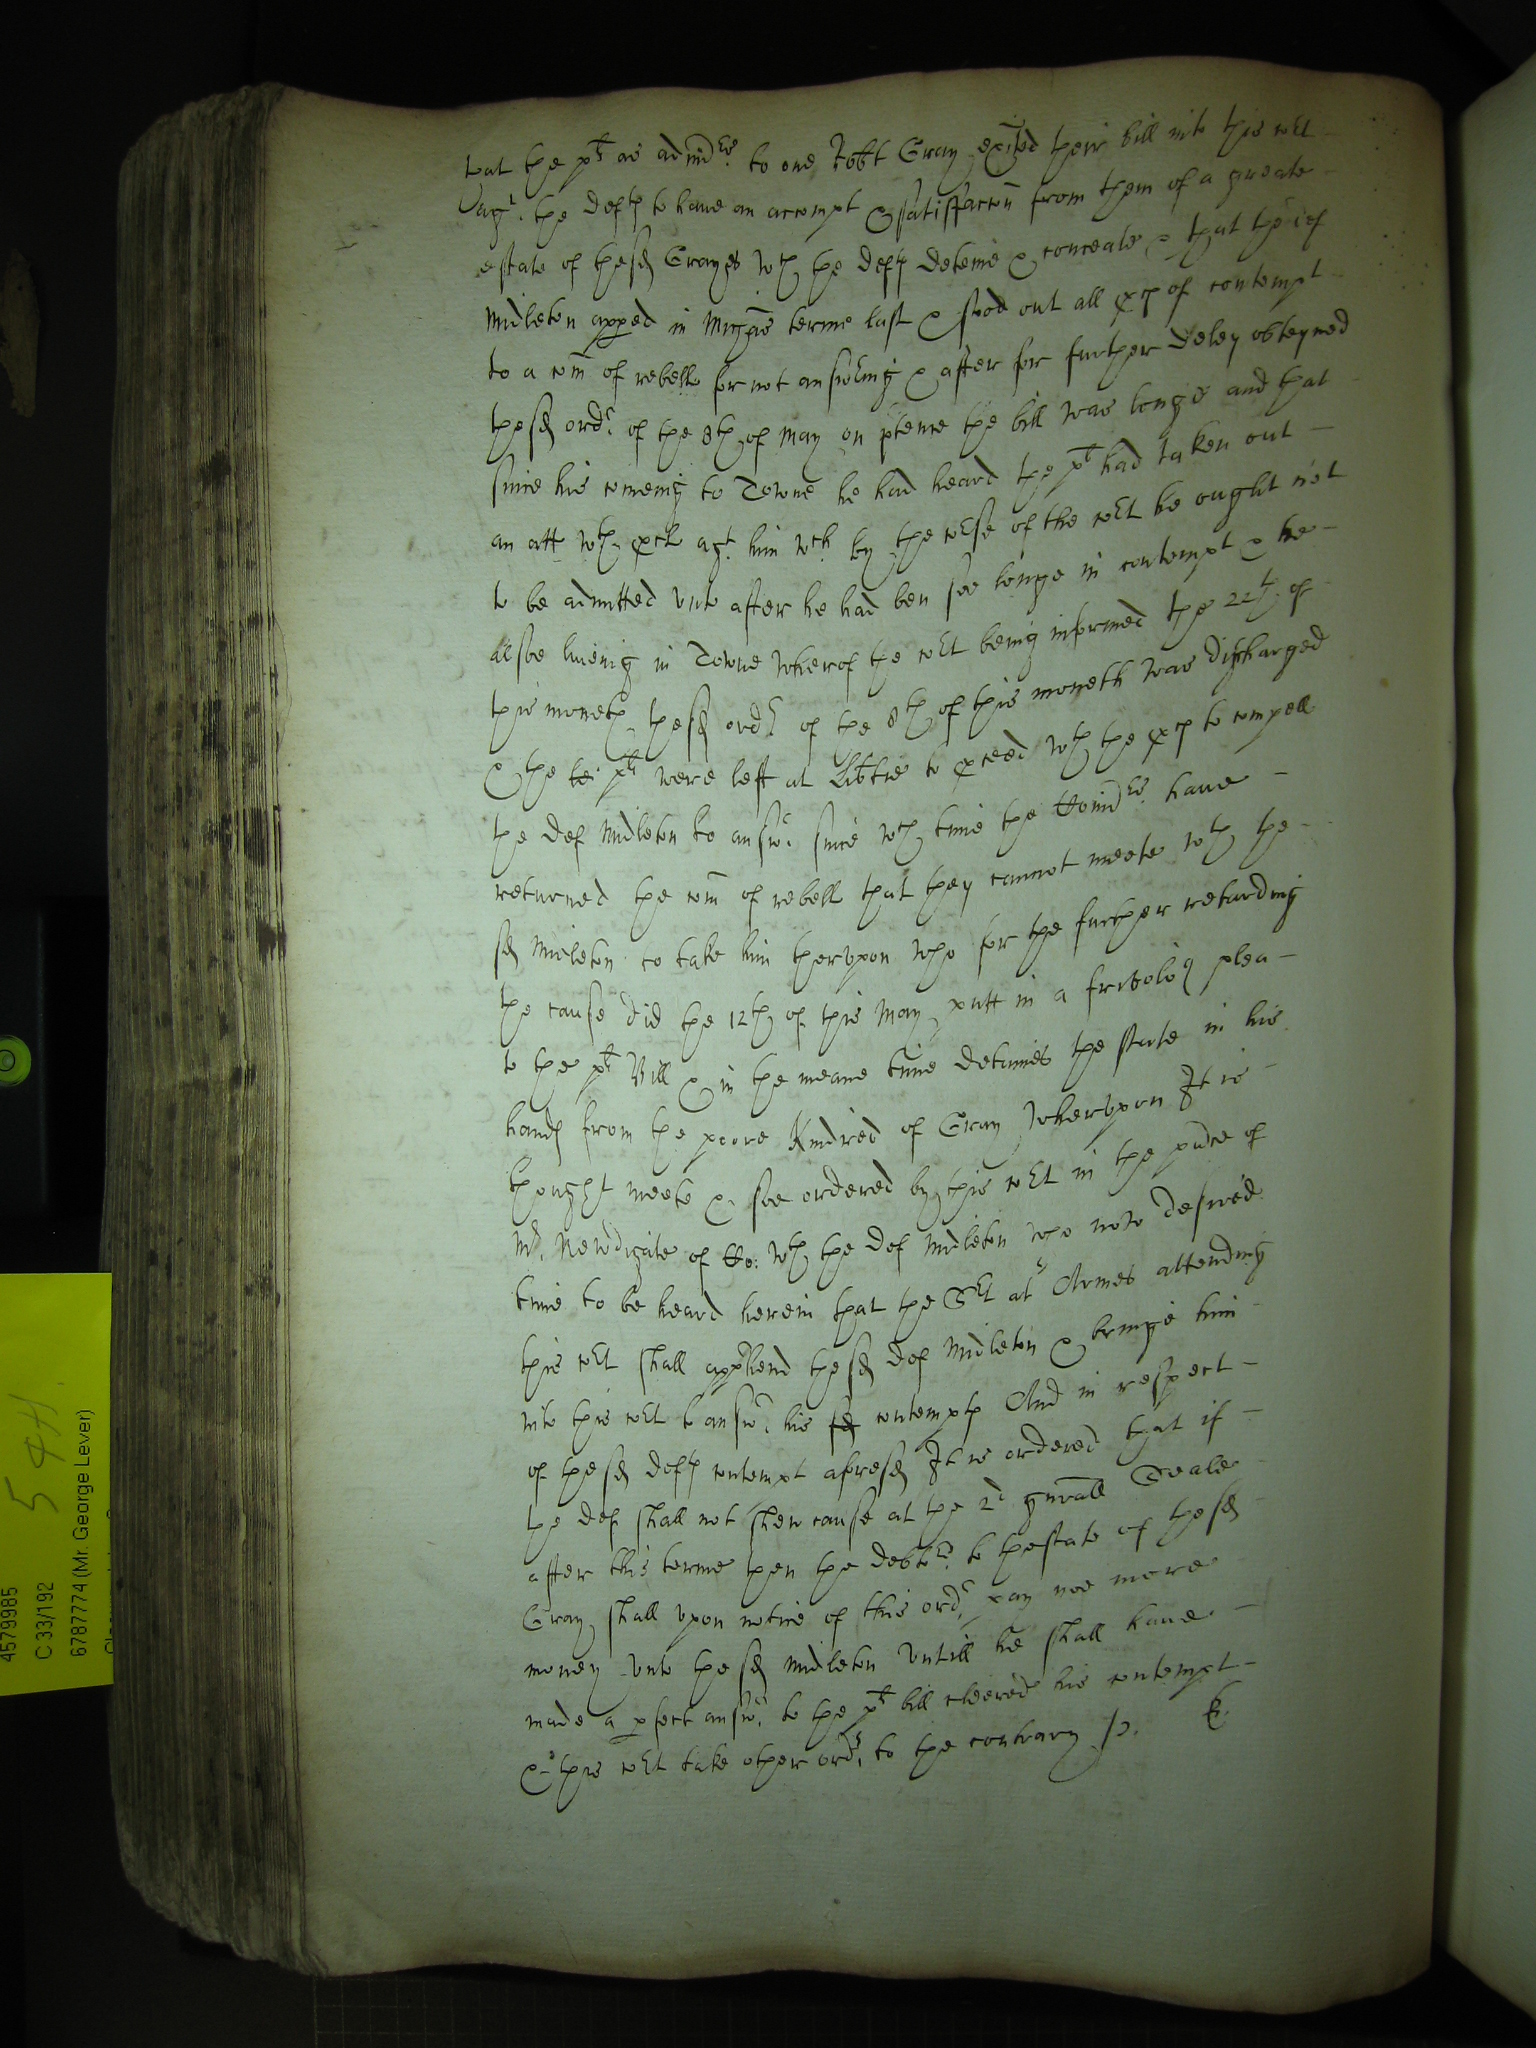 that the plts as admrs to one Robt Gray exhited their bill into this Cort
agt. the defts to have an accompt & satisfaccon from them of a greate
estate of the sd Grayes wch the defts deteine & conceale & that the def
Midleton apped in Michas terme last & stood out all pces of contempt
to a com of rebell for not answering & after for further deley obteyned
the sd ordr. of the 8th of May on ptence the bill was longe and that
since his comeing to Towne he had heard the plt had taken out
an att wth pcl agt. him wch by the corse of the Cort he ought not
to be admitted unto after he had ben soe longe in contempt & he
alsoe liveing in Towne wherof the Cort being informed the 22th of
this moneth the sd ordr of the 8th of this moneth was discharged
& the plts were left at libtie to pceed wth the pces to compell
the def Midleton to answr. since wch time the Comrs. have
returned the com of rebell that they cannot meete wth the
sd Midleton to take him therupon who for the further retarding
the cause did the 12th of this May putt in a frivolous plea
to the plts Bill & in the meane time deteines the state in his
hands from the poore Kindred of Gray wherupon It is
thought meete & soe ordered by this Cort in the psence of
Mr. Newdigate of Co: wth the def Midleton who now desired
time to be heard herein that the Sert at Armes attending
this Cort shall apphend the sd def Midleton & bringe him
into this Cort to answr. his contempts And in respect
of the sd defts contempt aforesd It is ordered that if
the def shall not shew cause at the 2d gnrall Seale
after this terme then the debtors. to the state of the sd
Gray shall upon notice of this ordr. pay noe more
money unto the sd Midleton untill he shall have
made a pfect answr. to the plts bill cleered his contempt
& this Cort take other ordr. to the contrary /.
4579985
C 33/192
6787774 (Mr. George Lever)
544